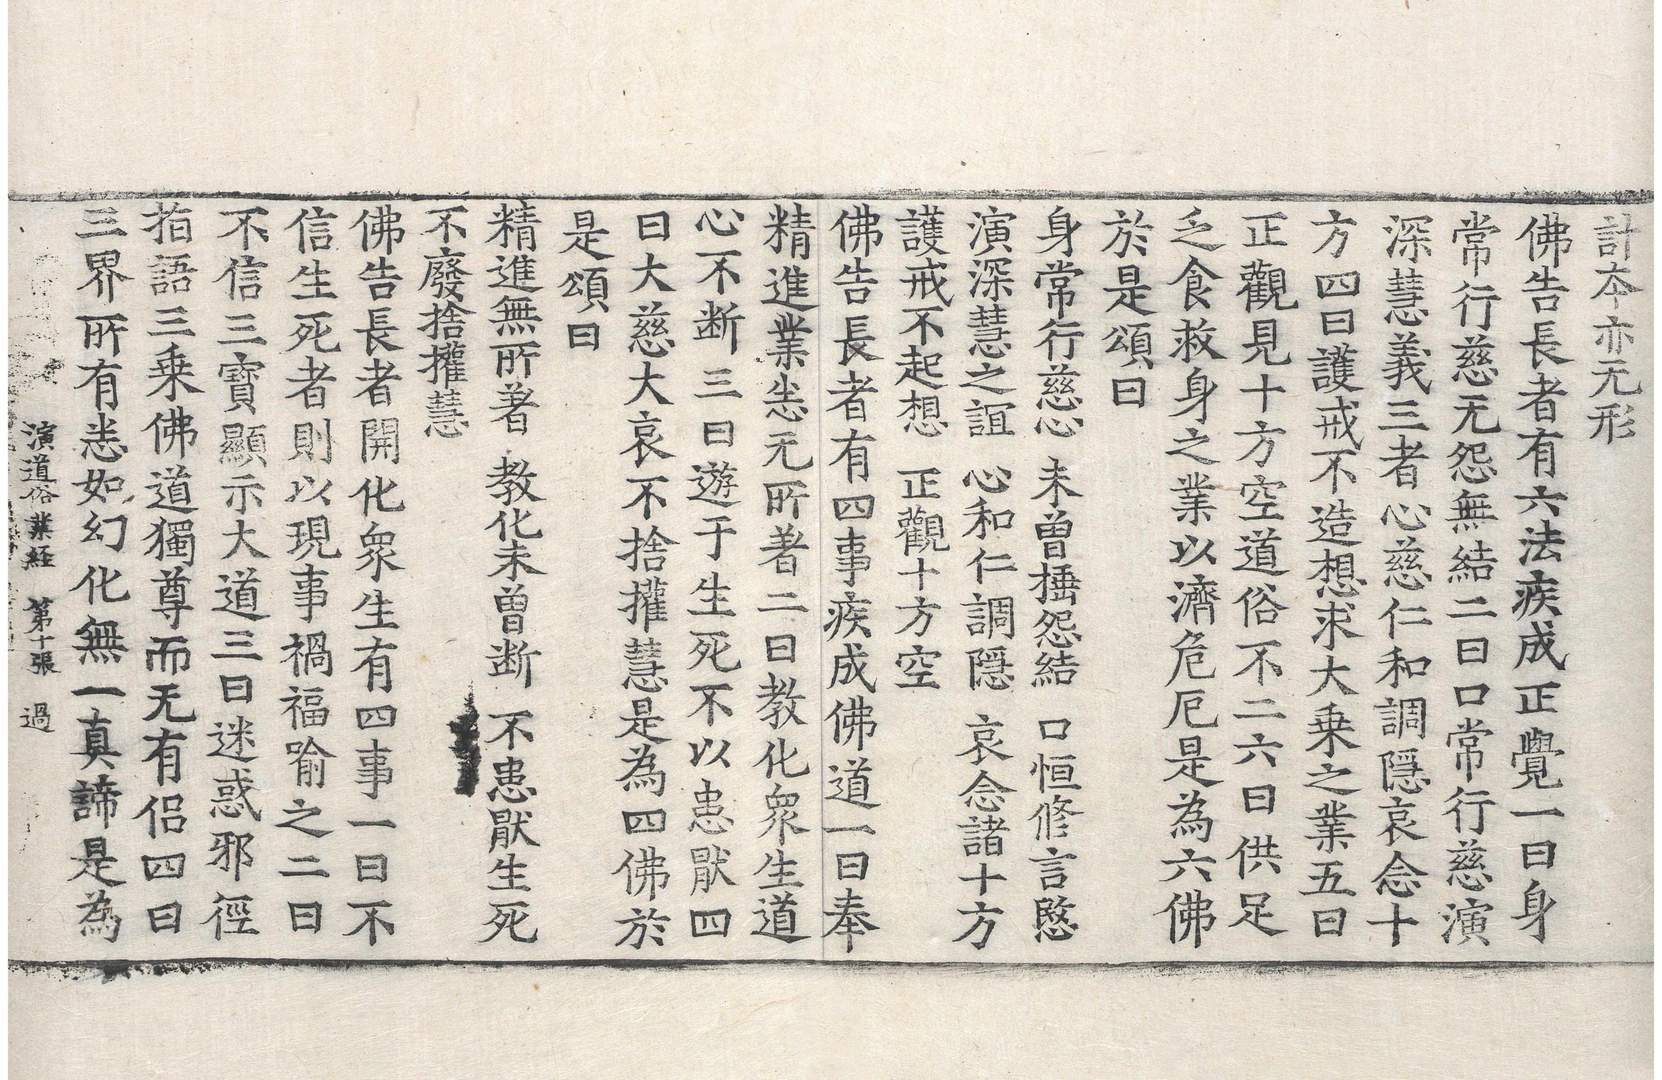 計夲亦无形
佛告長者有六法疾成正覺一曰身
常行慈无怨無結二曰口常行慈演
深慧義三者心慈仁和調隱哀念十
方四曰護戒不造想求大乗之業五曰
正觀見十方空道俗不二六曰供足
乏食救身之業以濟危厄是為六佛
於是頌曰
身常行慈心 未曽㨾怨結 口恒修言愍
演深慧之誼 心和仁調隱 哀念諸十方
護戒不起想 正觀十方空
佛告長者有四事疾成佛道一曰奉
精進業恙无所著二曰教化衆生道
心不断三曰遊于生死不以患厭四
曰大慈大哀不捨攉慧是為四佛於
是頌曰
精進無所著 教化未曽断 不患厭生死
不廢捨攉慧
佛告長者開化衆生有四事一曰不
信生死者則以現事禍福喻之二曰
不信三寶顯示大道三曰迷惑邪徑
指語三乗佛道獨尊而无有侣四曰
三界所有恙如幻化無一真諦是為
演道俗業経 第十張 過